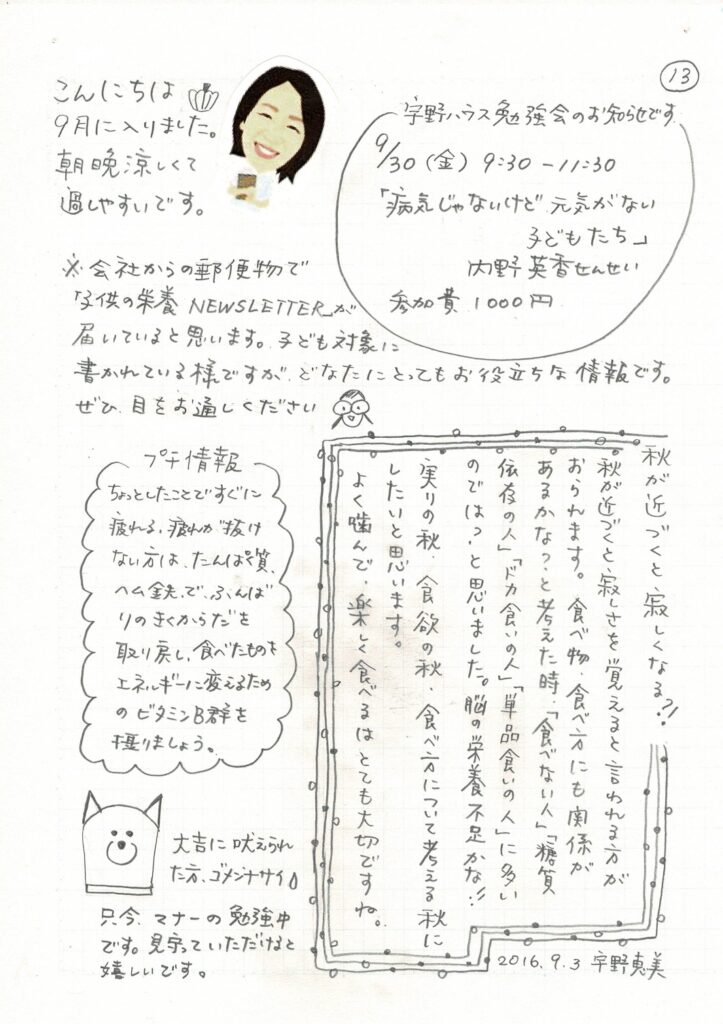 13
こんにちは
9月に入りました。
朝晩涼しくて
過しやすいです。
宇野ハウス勉強会のお知らせです
9/30(金) 9:30-11:30
「病気じゃないけど元気がない
子どもたち」
内野英香せんせい
参加費 1000円
※会社からの郵便物で
「子供の栄養 NEWSLETTER」が
届いていると思います。子ども対象に
書かれている様ですが、どなたにとってもお役立ちな情報です。
ぜひ、目をお通しください
秋が近づくと寂しくなる?!
秋が近づくと、寂しさを覚えると言われる方が
おられます。食べ物、食べ方にも関係が
あるかな?と考えた時、「食べない人」「糖質
依存の人」「ドカ食いの人」「単品食いの人」に多い
のでは?と思いました。脳の栄養不足かな!!
実りの秋、食欲の秋、食べ方について考える秋に
したいと思います。
よく噛んで、楽しく食べるはとても大切ですね。
プチ情報
ちょっとしたことですぐに
疲れる、疲れが抜け
ない方は、たんぱく質、
ヘム鉄、で、ふんば
りのきくからだを
取り戻し、食べたものを
エネルギーに変えるため
のビタミンB群を
摂りましょう。
大吉に吠えられ
た方、ゴメンナサイ
只今、マナーの勉強中
です。見守っていただけると
嬉しいです。
2016.9.3 宇野恵美